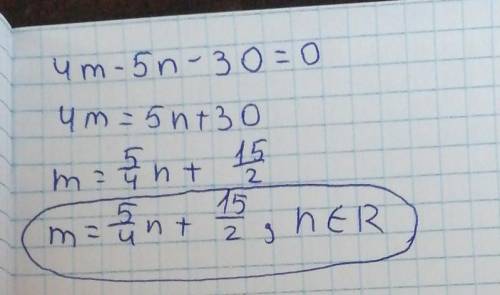 4m-5n-30=0
4m=5n+30
m=5/4n+ 15/2
m=5/4n+ 15/2, n∈R